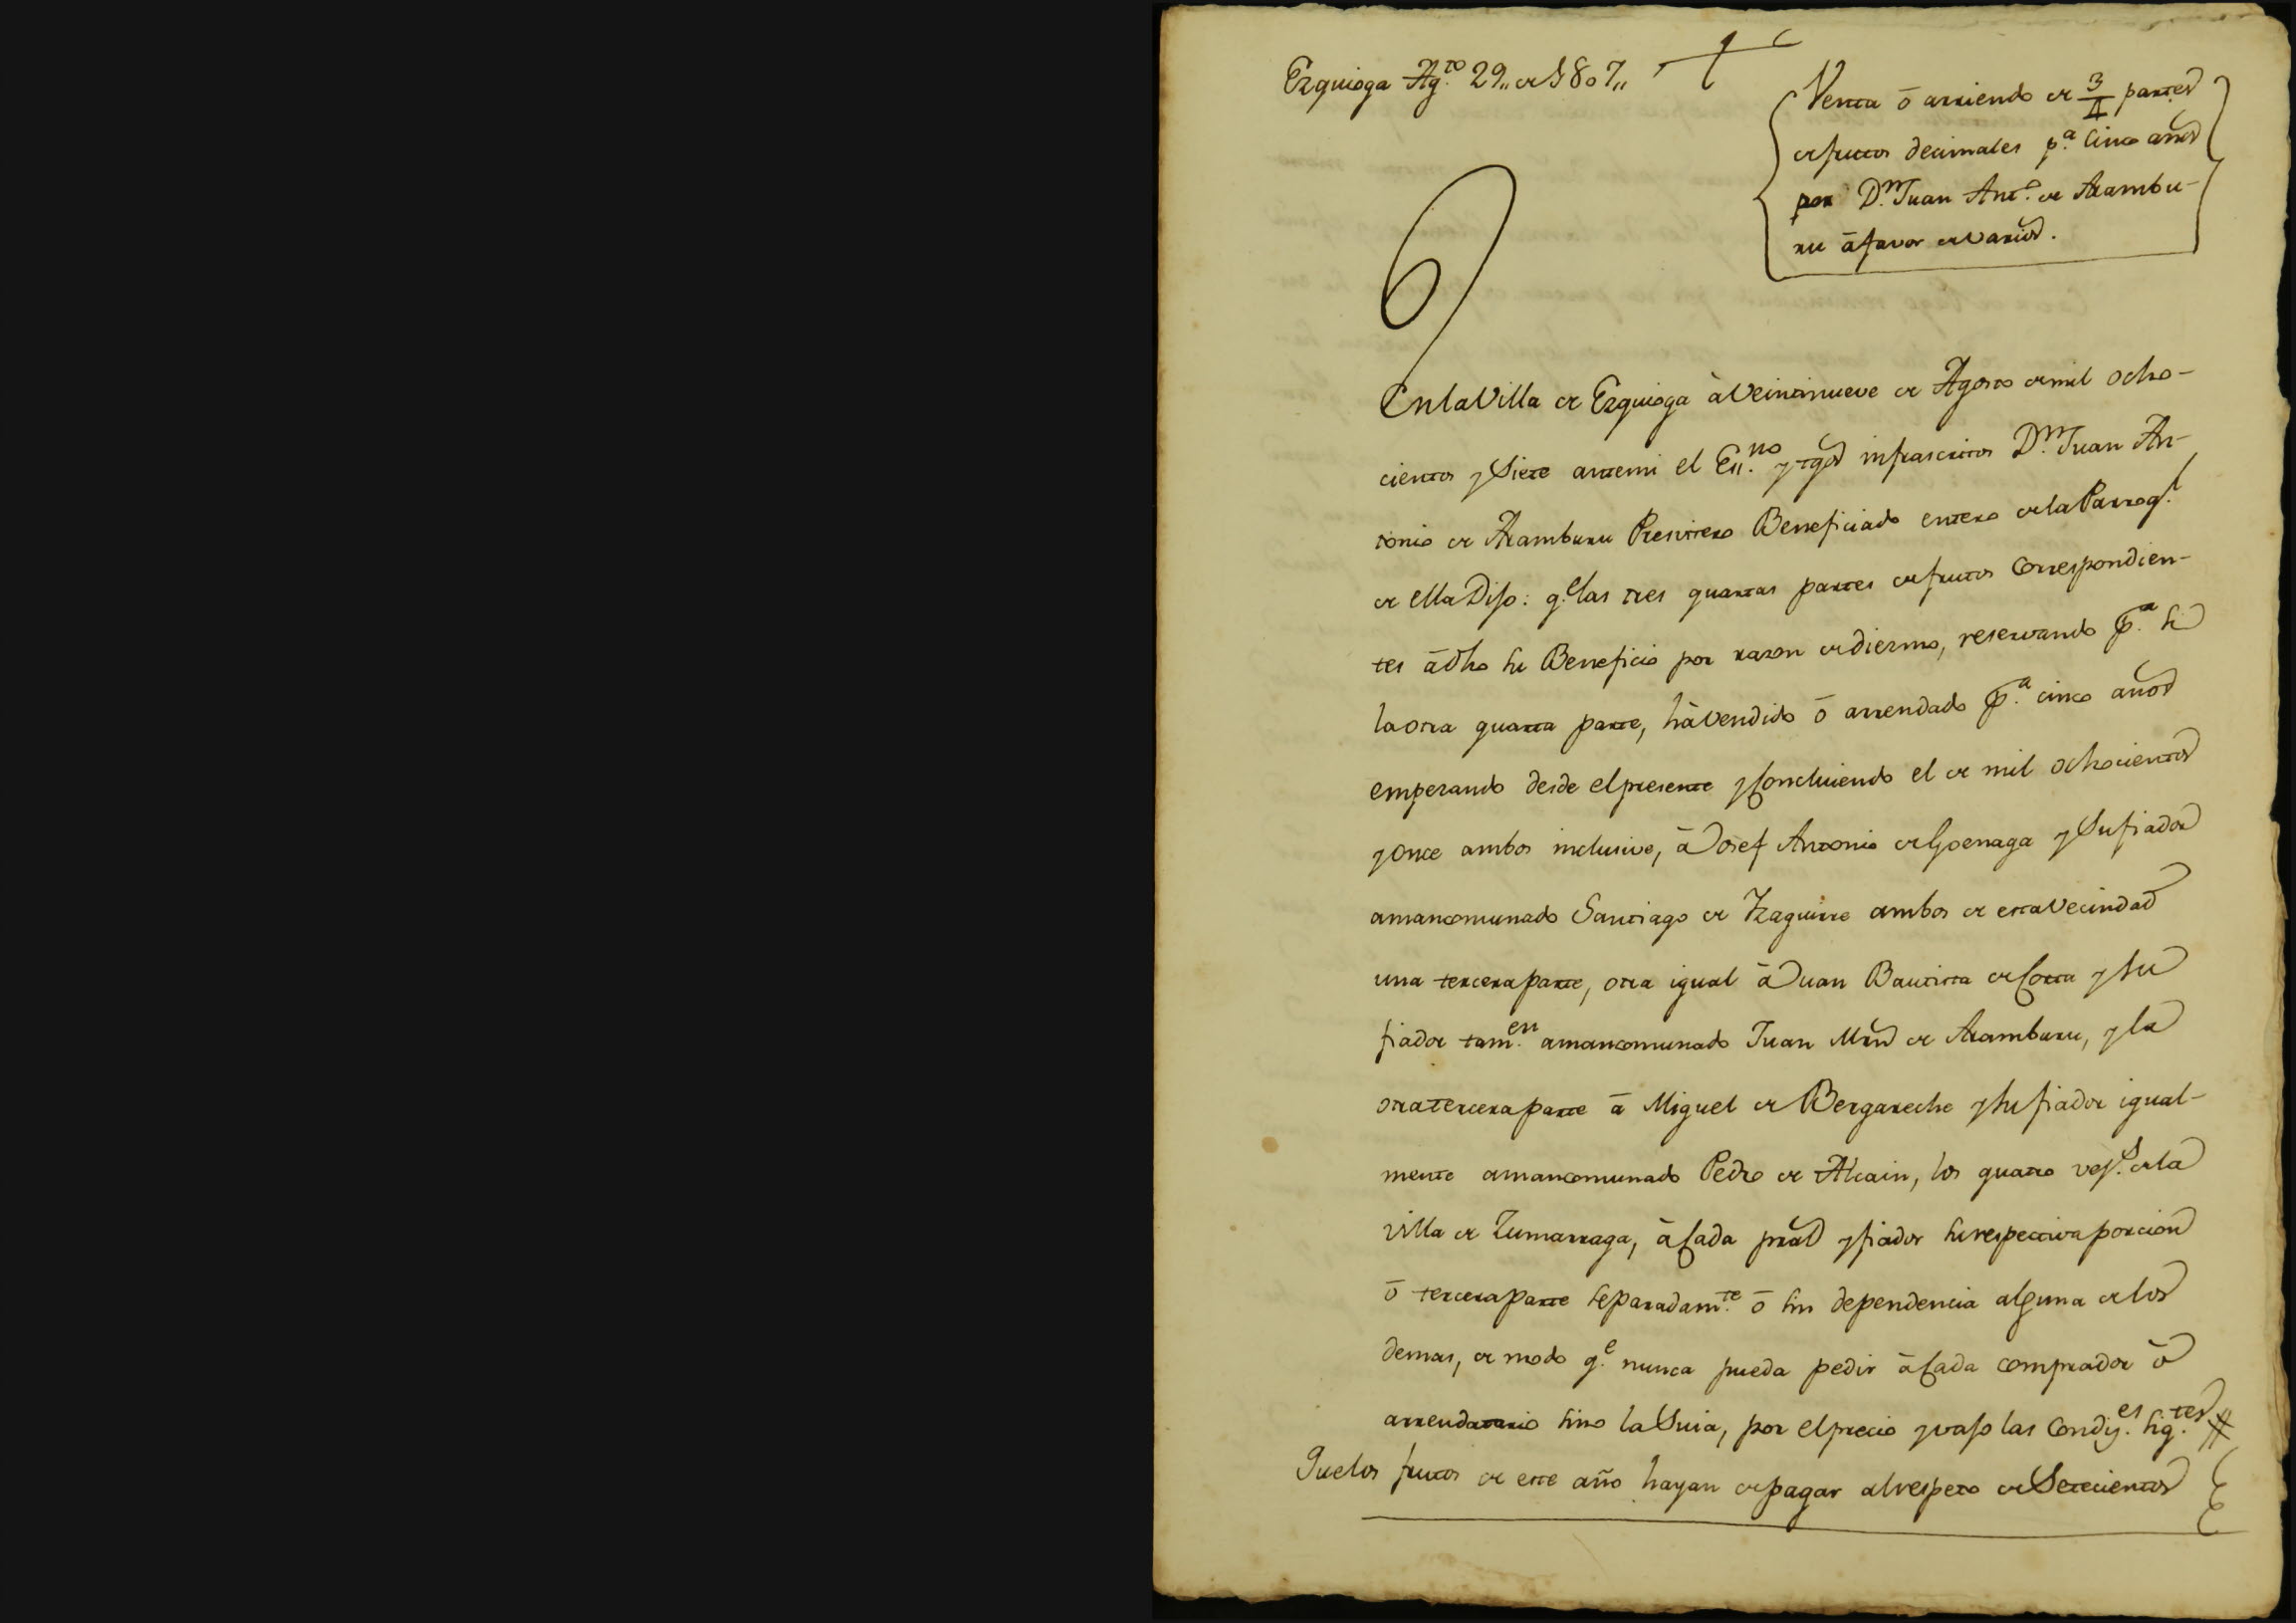 Ezquioga Ag.to 29,, de 1807,,
Venta ō arriendo de 3/4 partes
de frutos decimales p.a Cinco años
por D.n Juan Ant.o de Arambu-
ru ā favor de varios.
En la Villa de Ezquioga à Veintinueve de Agosto de mil ocho-
cientos y Siete antemi el Es.no y tgos infrascritos D.n Juan An-
tonio de Aramburu Presvitero Beneficiado entero de la Parroq.l
de ella Dijo: q.e las tres quartas partes de frutos Correspondien-
tes ā dho su Beneficio por razon de diezmo, reservando p.a si
la otra quarta parte, hà Vendido ō arrendado p.a cinco años
empezando desde el presente y Concluiendo el de mil ochocientos
y once ambos inclusive, ā Josef Antonio de Goenaga y Su fiador
amancomunado Santiago de Yzaguirre ambos de esta Vecindad
una tercera parte, otra igual ā Juan Bautista de Corta y su
fiador tam.en amancomunado Juan Mrn de Aramburu, y la
otra tercera parte ā Miguel de Bergareche y su fiador igual-
mente amancomunado Pedro de Alcain, los quatro vez.s de la
villa de Zumarraga, à Cada pral y fiador su respectiva porcion
ō tercera parte separadam.te ō sin dependencia alguna de los
demas, de modo q.e nunca pueda pedir ā Cada comprador ō
arrendatario sino la Suia, por el precio y vajo las Condiz.es sig.tes
Que los frutos de este año hayan de pagar al respeto de Setecientos